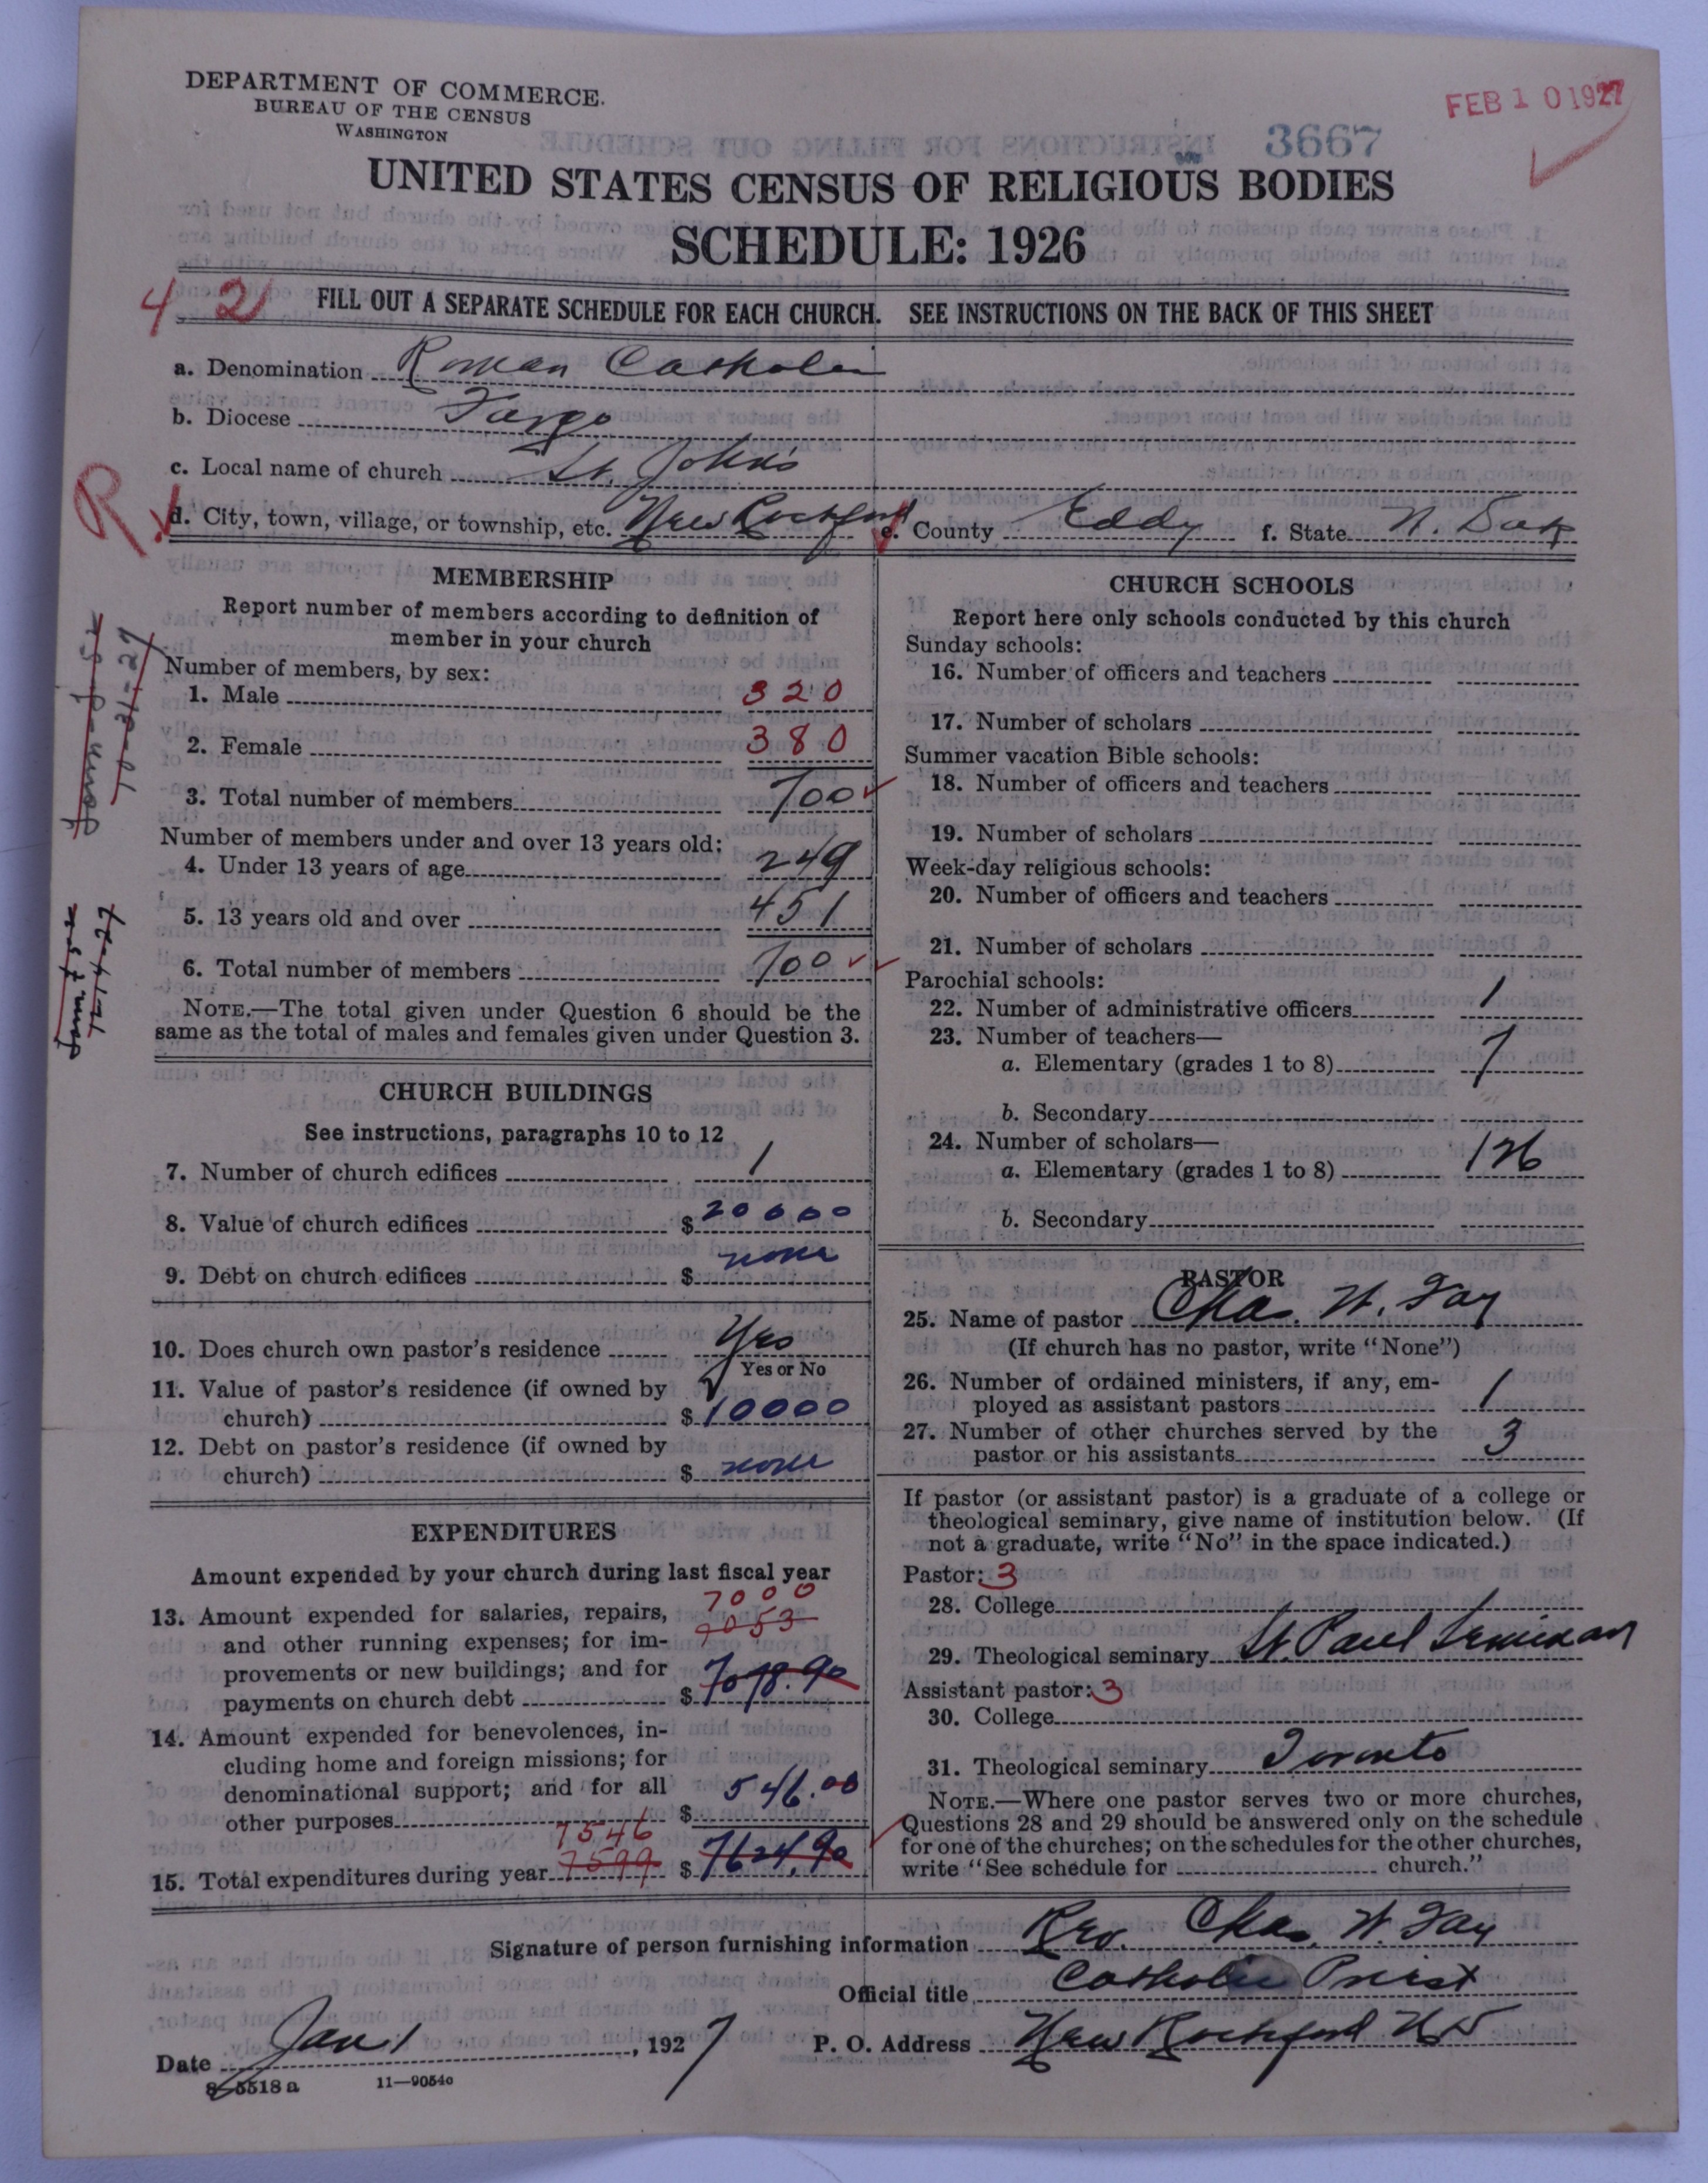 DEPARTMENT OF COMMERCE
BUREAU OF THE CENSUS
WASHINGTON
FEB 10 1927
3667
UNITED STATES CENSUS OF RELIGIOUS BODIES
SCHEDULE: 1926
4 2
FILL OUT A SEPARATE SCHEDULE FOR EACH CHURCH. SEE INSTRUCTIONS ON THE BACK OF THIS SHEET
a. Denomination Roman Catholic
b. Diocese Fargo
c. Local name of church St. John's
R
d. City, town, village, or township, etc. New Rockford e. County Eddy f. State N. Dak
MEMBERSHIP
Report number of members according to definition of
member in your church
Number of members, by sex:
1. Male 320
2. Female 380
3. Total number of members 700
Number of members under and over 13 years old:
4. Under 13 years of age 249
5. 13 years old and over 451
6. Total number of members 700
NOTE.—The total given under Question 6 should be the
same as the total of males and females given under Question 3.
CHURCH BUILDINGS
See instructions, paragraphs 10 to 12
7. Number of church edifices 1
8. Value of church edifices $ 20000
9. Debt on church edifices $ none
10. Does church own pastor's residence Yes
Yes or No
11. Value of pastor's residence (if owned by
church) $ 10000
12. Debt on pastor's residence (if owned by
church) $ none
EXPENDITURES
Amount expended by your church during last fiscal year
7000
13. Amount expended for salaries, repairs, 7053
and other running expenses; for im-
provements or new buildings; and for
payments on church debt $ 7078.90
14. Amount expended for benevolences, in-
cluding home and foreign missions; for
denominational support; and for all
other purposes $ 546.00
7546
15. Total expenditures during year 7599 $ 7624.90
CHURCH SCHOOLS
Report here only schools conducted by this church
Sunday schools:
16. Number of officers and teachers
17. Number of scholars
Summer vacation Bible schools:
18. Number of officers and teachers
19. Number of scholars
Week-day religious schools:
20. Number of officers and teachers
21. Number of scholars
Parochial schools:
22. Number of administrative officers 1
23. Number of teachers—
a. Elementary (grades 1 to 8) 7
b. Secondary
24. Number of scholars—
a. Elementary (grades 1 to 8) 126
b. Secondary
PASTOR
25. Name of pastor Chas. W. Fay
(If church has no pastor, write "None")
26. Number of ordained ministers, if any, em-
ployed as assistant pastors 1
27. Number of other churches served by the
pastor or his assistants 3
If pastor (or assistant pastor) is a graduate of a college or
theological seminary, give name of institution below. (If
not a graduate, write "No" in the space indicated.)
Pastor: 3
28. College
29. Theological seminary St. Paul Seminary
Assistant pastor: 3
30. College
31. Theological seminary Toronto
NOTE.—Where one pastor serves two or more churches,
Questions 28 and 29 should be answered only on the schedule
for one of the churches; on the schedules for the other churches,
write "See schedule for church."
Signature of person furnishing information Rev. Chas. W. Fay
Official title Catholic Priest
Date Jan 1, 1927 P. O. Address New Rockford N D
8-5518 a 11—9054c